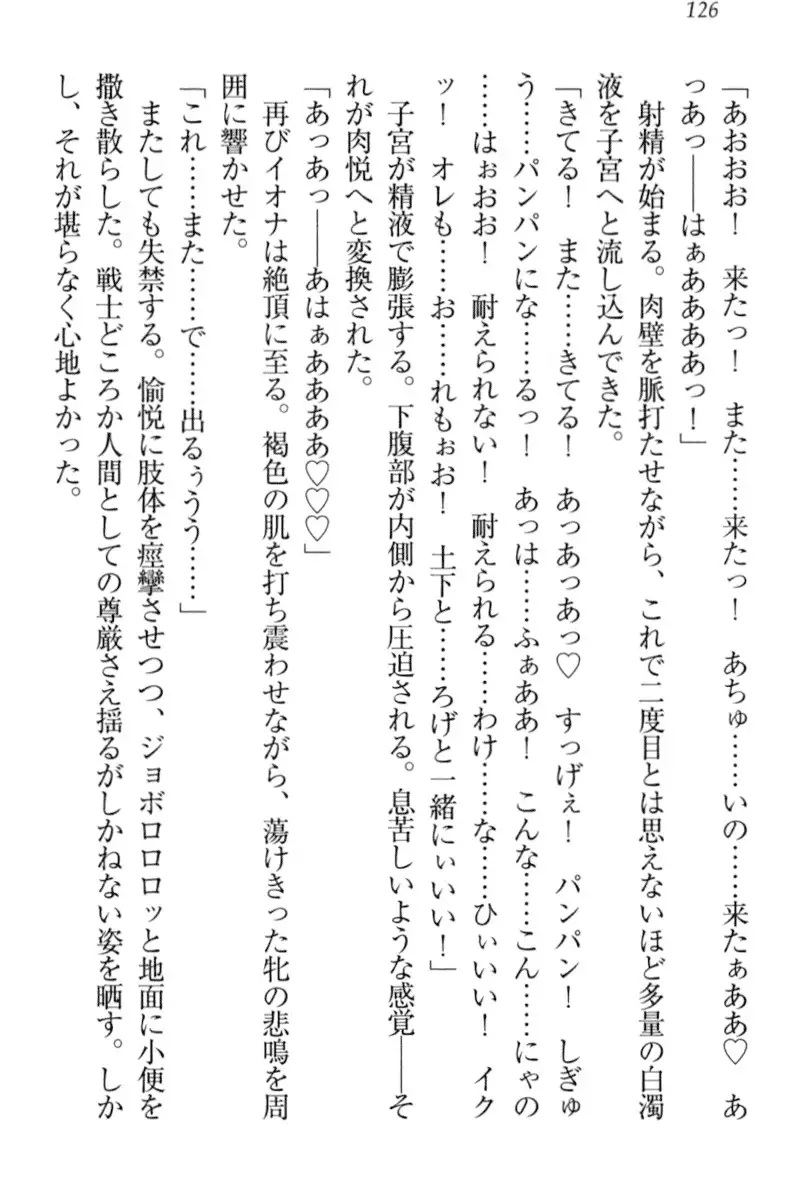 126
「あおおお！　来たっ！　また……来たっ！　あちゅ……いの……来たぁああ♡　あ
っあっ――はぁああああっ！」
　射精が始まる。肉壁を脈打たせながら、これで二度目とは思えないほど多量の白濁
液を子宮へと流し込んできた。
「きてる！　また……きてる！　あっあっあっ♡　すっげぇ！　パンパン！　しぎゅ
う……パンパンにな……るっ！　あっは……ふぁああ！　こんな……こん……にゃの
……はぉおお！　耐えられない！　耐えられる……わけ……な……ひぃいい！　イク
ッ！　オレも……お……れもぉお！　土下と……ろげと一緒にぃいい！」
　子宮が精液で膨張する。下腹部が内側から圧迫される。息苦しいような感覚――そ
れが肉悦へと変換された。
「あっあっ――あはぁああああ♡♡♡」
　再びイオナは絶頂に至る。褐色の肌を打ち震わせながら、蕩けきった牝の悲鳴を周
囲に響かせた。
「これ……また……で……出るぅうう……」
　またしても失禁する。愉悦に肢体を痙攣させつつ、ジョボロロロッと地面に小便を
撒き散らした。戦士どころか人間としての尊厳さえ揺るがしかねない姿を晒す。しか
し、それが堪らなく心地よかった。